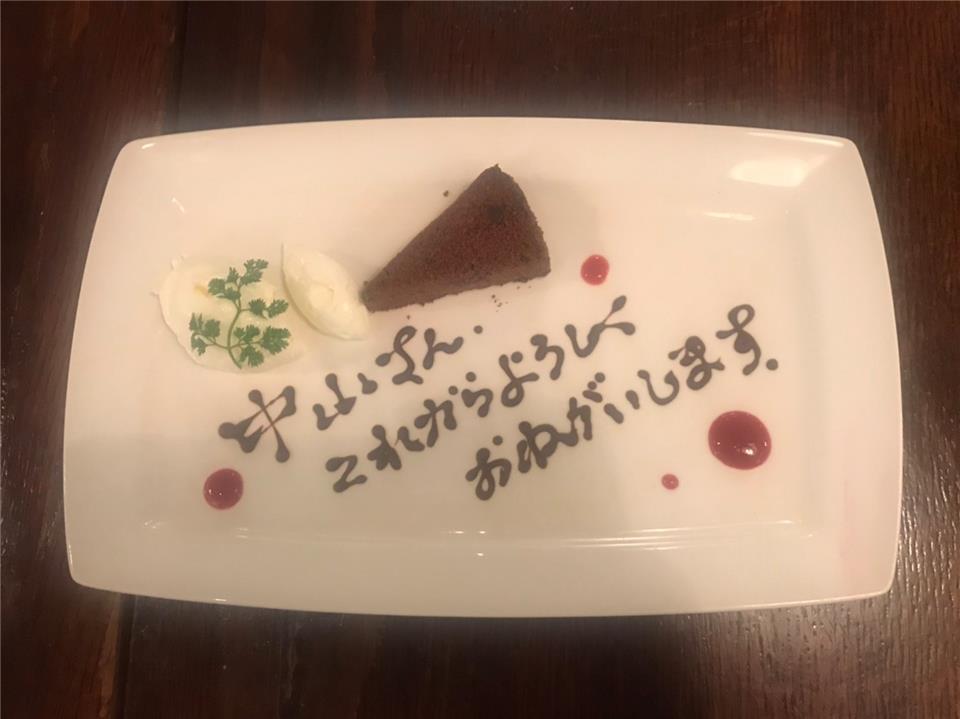 中山さん.
これからよろしく
おねがいします.